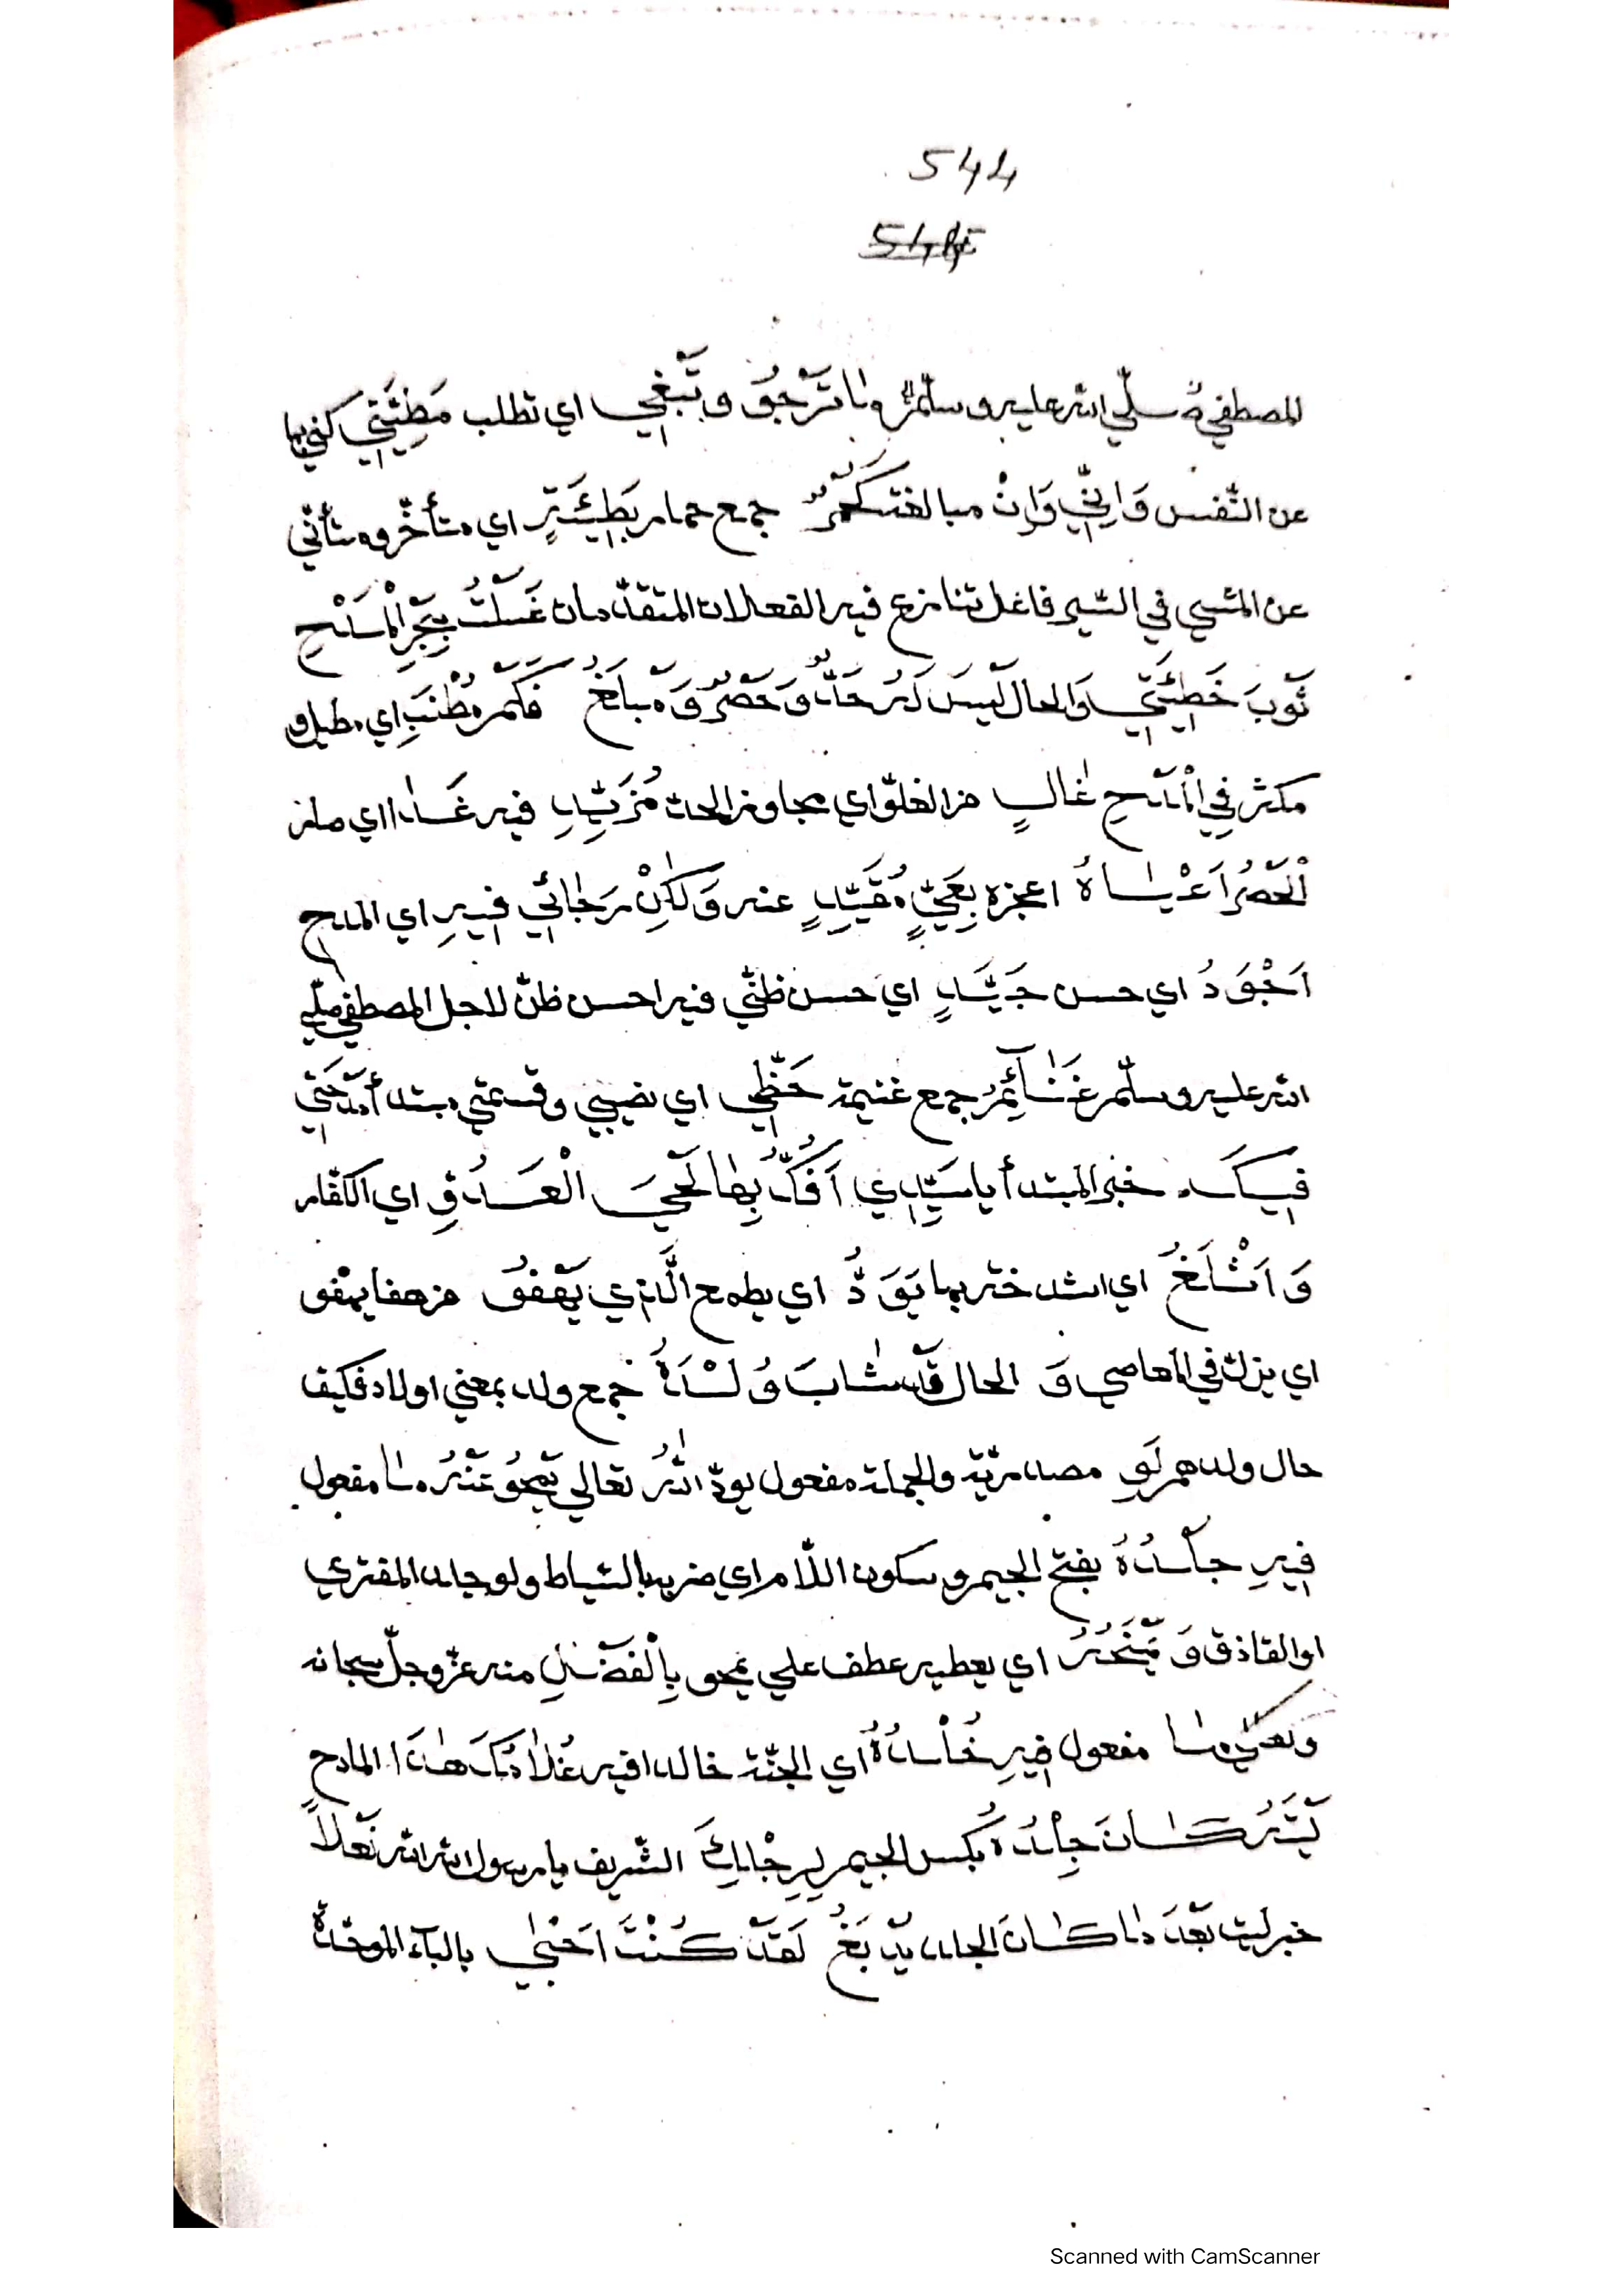 544
للمصطفي صلّي الله عليه وسلّم وَمَا تَرْجُو وَتَبْغِي اي تطلب مَطِيَّتِي كني بها
عن النّفس وَانِّي وَانْ مبالغة حُمُرٌ جمع حمار بَطِيْئَةٍ اي متأخّر ومتأنّي
عن المشي في السّير فاعل تنازع فيه الفعلان المتقدّمان غَسَلْتُ بِبَحْرِ الْمَدْحِ
ثَوْبَ خَطِيْئَتِي وَالحال لَيْسَ لَهُ حَدٌّ وَحَصْرٌ وَمَبْلَغُ فَكَمْ مُطْنَبِ اي مطيل و
مكثر فِي الْمَدْحِ غَالٍ من الغلوّ اي مجاوز الحد مُزَيِّدِ فيه غَدَا اي صار
الْحَصْرُ اَعْيَاهُ اعجزه بِعَيٍّ مُقَيِّدٍ عنه وَلٰكِنْ رَجَائِي فِيهِ اي المدح
اَجْوَدُ اي حسن جَيِّدٍ اي حسن ظنّي فيه احسن ظنّ لاجل المصطفي صلّي
الله عليه وسلّم غَنَائِمُ جمع غنيمة حَظِّي اي نصيبي وقسمتي مبتدأ مِدْحَتِي
فِيكَ خبر المبتدأ يا سَيِّدِي اَفُكُّ بِهَا لَحْيَ الْعَدُوِّ اي الكفّار
وَاَثْلَغُ اي اشدخه بها يَوَدُّ اي يطمع الَّذِي يَهْفُو من هفا يهفو
اي يزلّ في المعاصي وَ الحال قَدْ شَابَ وُلْدَهُ جمع ولد بمعني اولاد فكيف
حال ولدهم لَوِ مصدريّة والجملة مفعول يودّ اللهُ تعالي يَمْحُو عَنْهُ مَا مفعول
فِيهِ جَلْدُهُ بفتح الجيم وسكون اللّام اي ضربه بالسّياط ولو جلد المفتري
او القاذف وَيَمْنَحُهُ اي يعطيه عطف علي يمحو بِالْفَضْلِ منه عزّ وجلّ سبحانه
وتعالي مَا مفعول فِيهِ خُلْدُهُ اي الجنّة خالدا فيه غُلَامُكَ هٰذَا المادح
لَيْتَهُ كَانَ جِلْدُهُ بكسر الجيم لِرِجْلِكَ الشّريف يا رسول الله نَعْلاً
خبر ليت بَعْدَ مَا كَانَ الجلد يُدْبَغُ لَقَدْ كُنْتَ اَحْبٰي بالبآء الموحّدة
Scanned with CamScanner